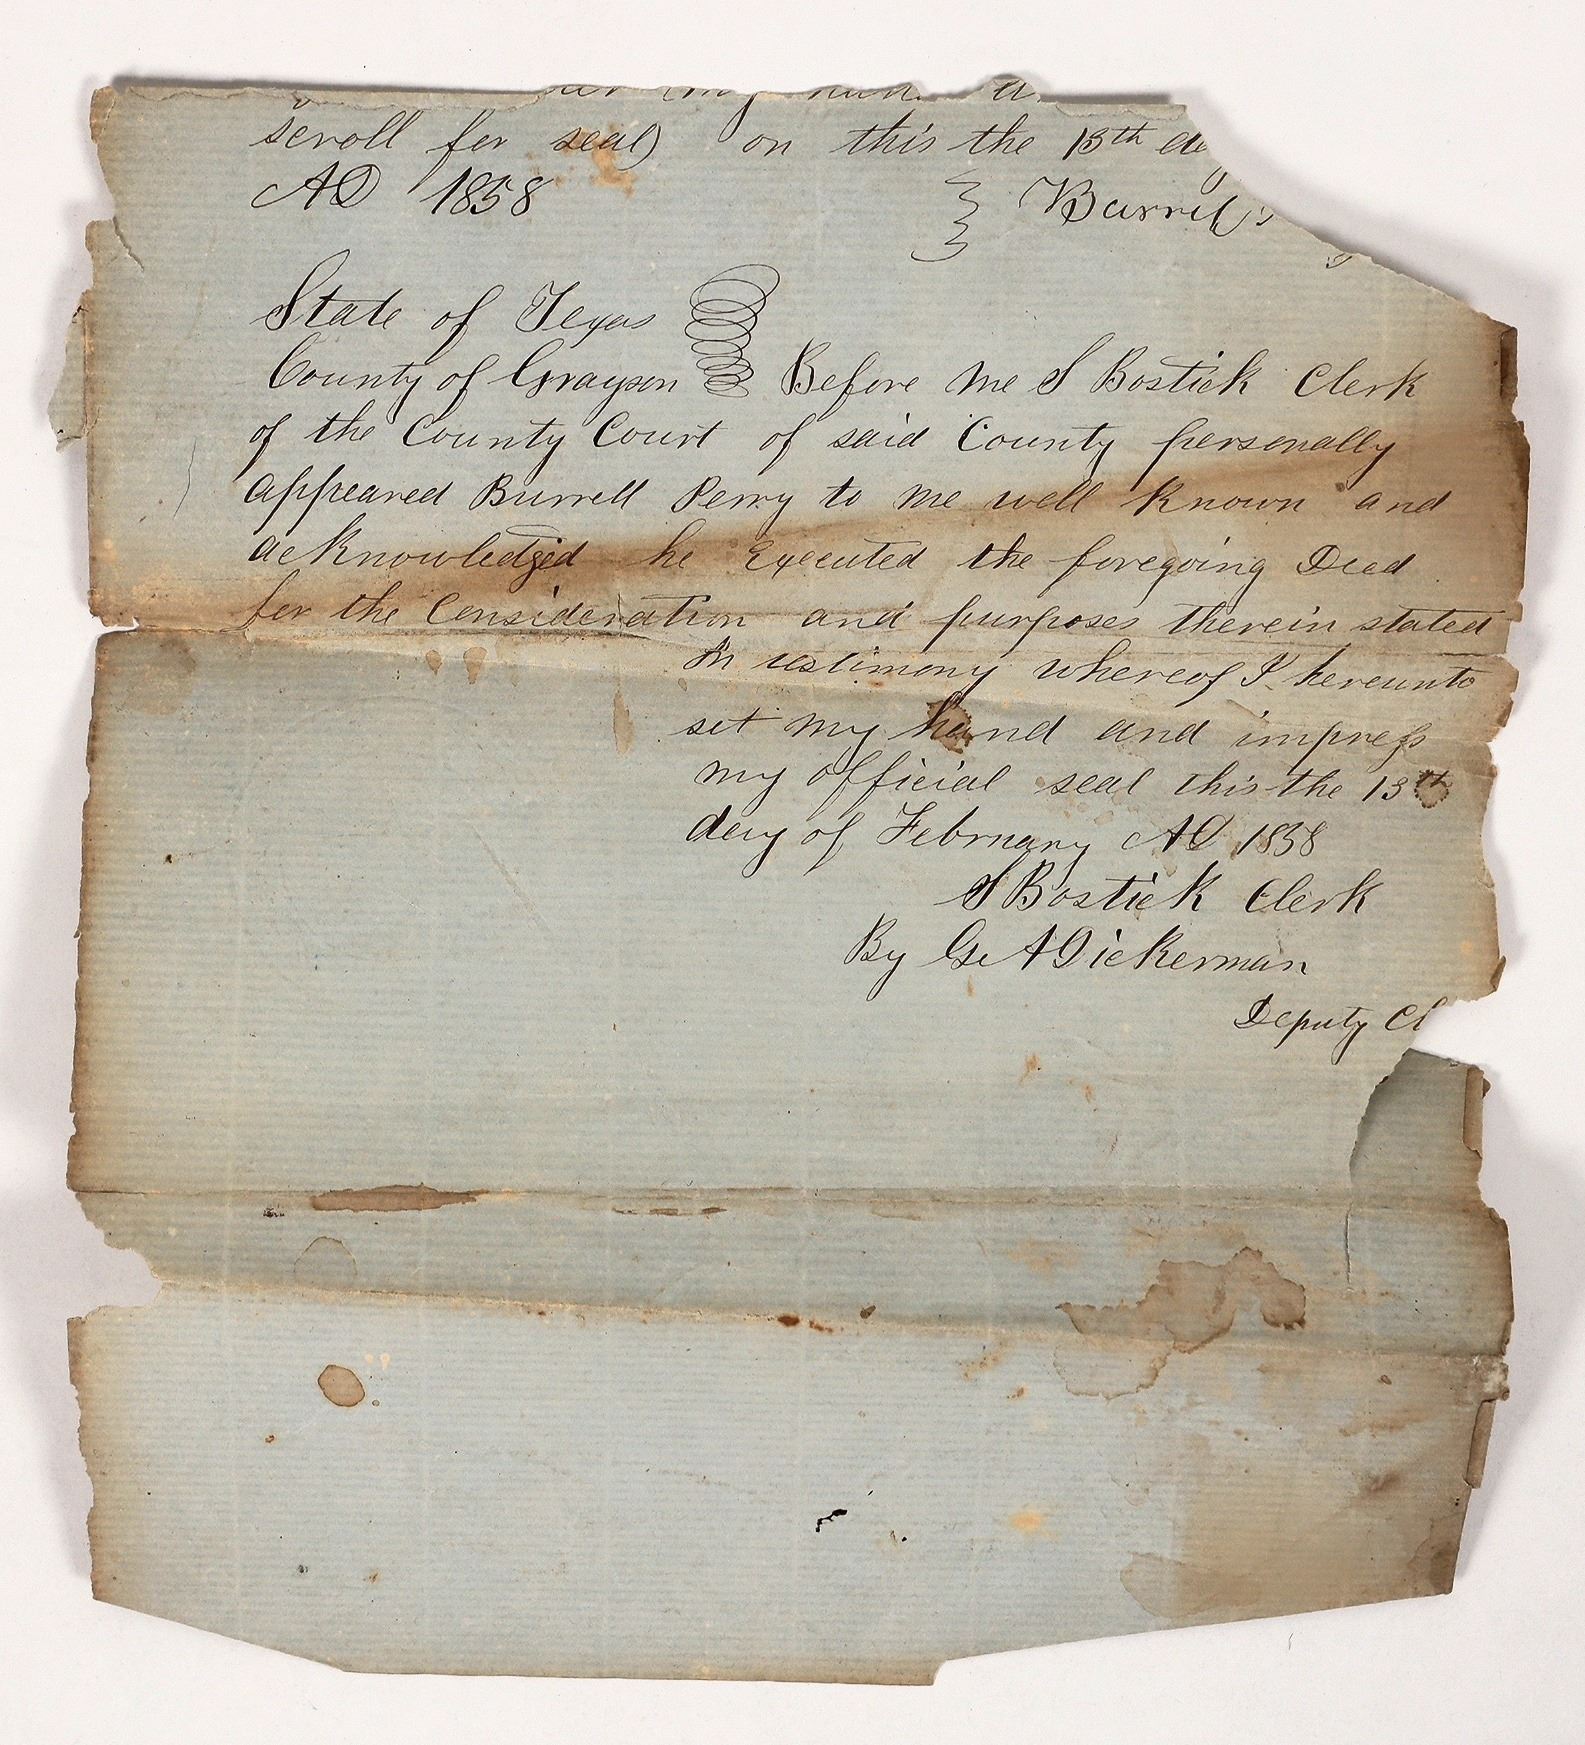 my hand
scroll for seal) on this the 13th day
AD 1858 Burrel
State of Texas
County of Grayson Before me S Bostick Clerk
of the County Court of said County personally
appeared Burrell Perry to me well known and
acknowledged he Executed the foregoing Deed
for the Consideration and purposes therein stated
In testimony whereof I hereunto
set my hand and impress
my official seal this the 13th
day of February AD 1858
S Bostick Clerk
By G A Dickerman
Deputy Cl